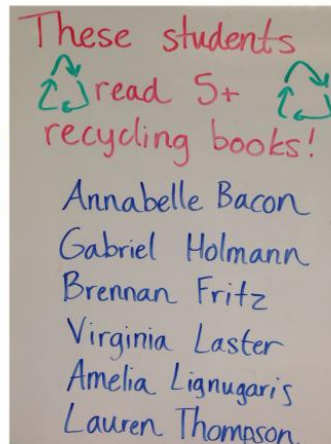 These students
read 5+
recycling books!
Annabelle Bacon
Gabriel Holmann
Brennan Fritz
Virginia Laster
Amelia Lignugaris
Lauren Thompson